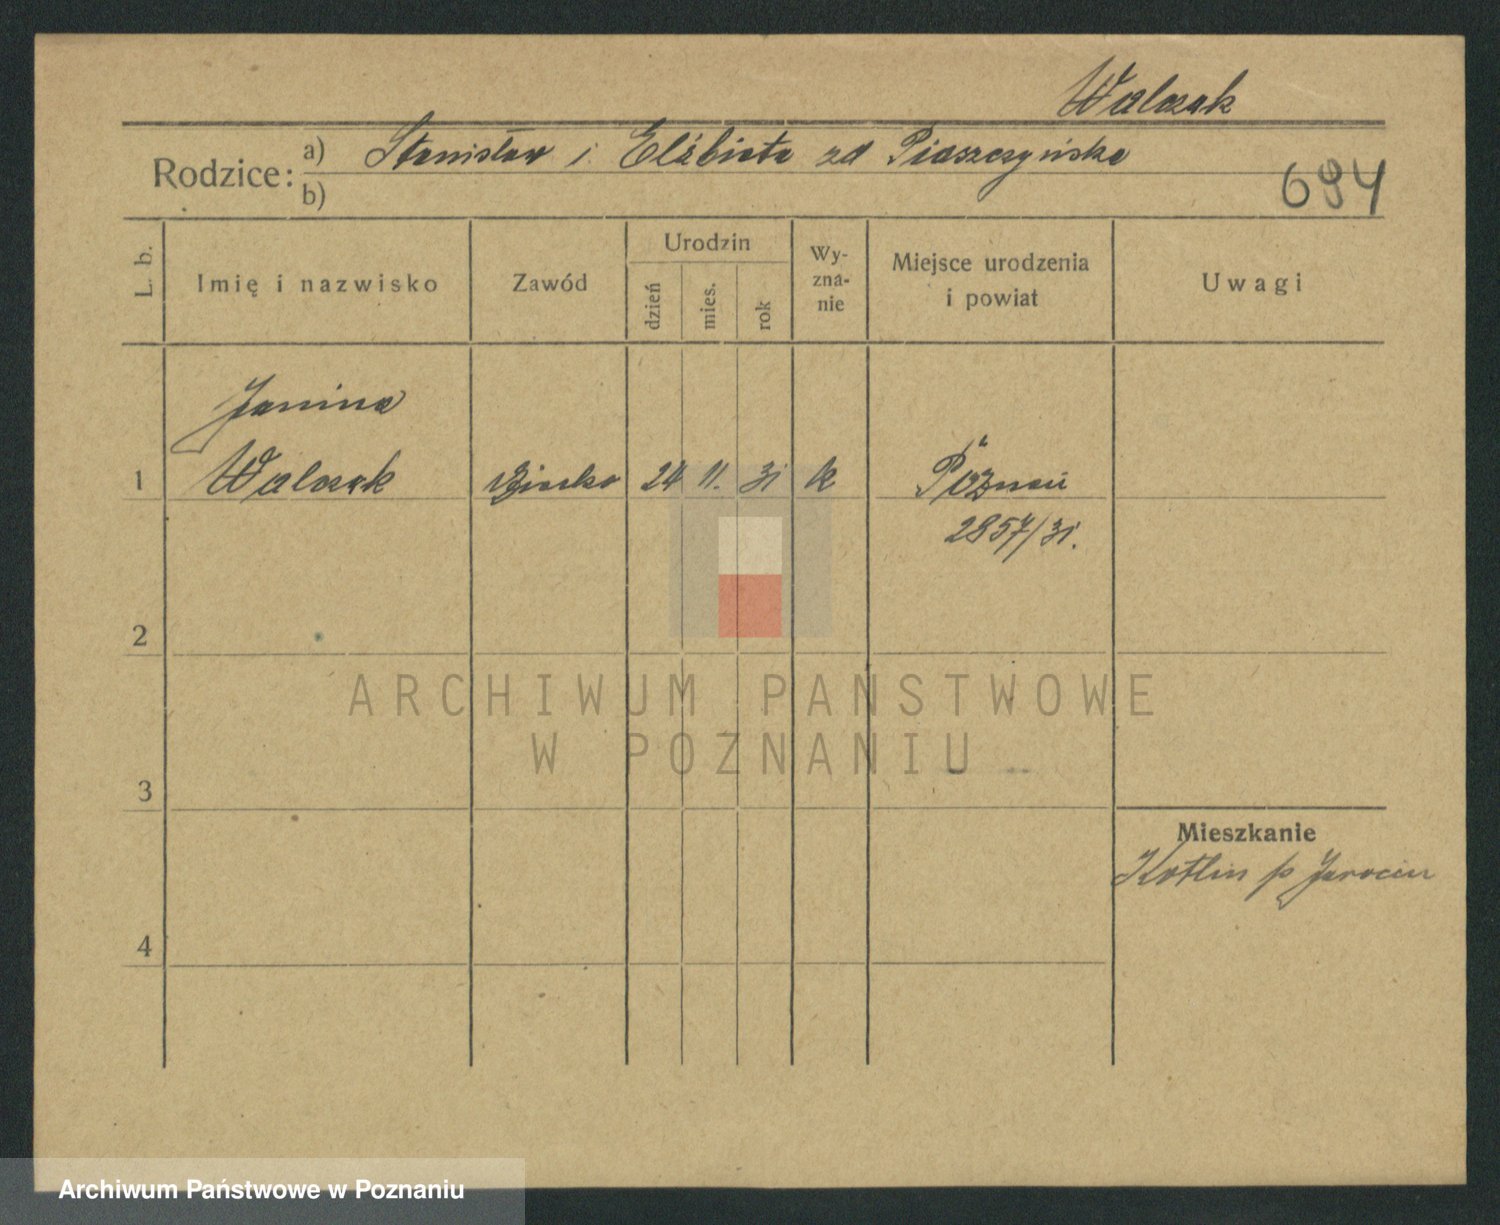 Walczak
Rodzice: a) Stanisław i Elżbieta zd Piaszczyńska
b)
694
L. b.
Imię i nazwisko
Zawód
Urodzin
dzień
mies.
rok
Wy-
zna-
nie
Miejsce urodzenia
i powiat
Uwagi
Janina
1 Walczak 24 11. 31 k Poznań
2857/31.
2
3
4
Mieszkanie
Kotlin p Jarocin
ARCHIWUM PAŃSTWOWE
W POZNANIU
Archiwum Państwowe w Poznaniu